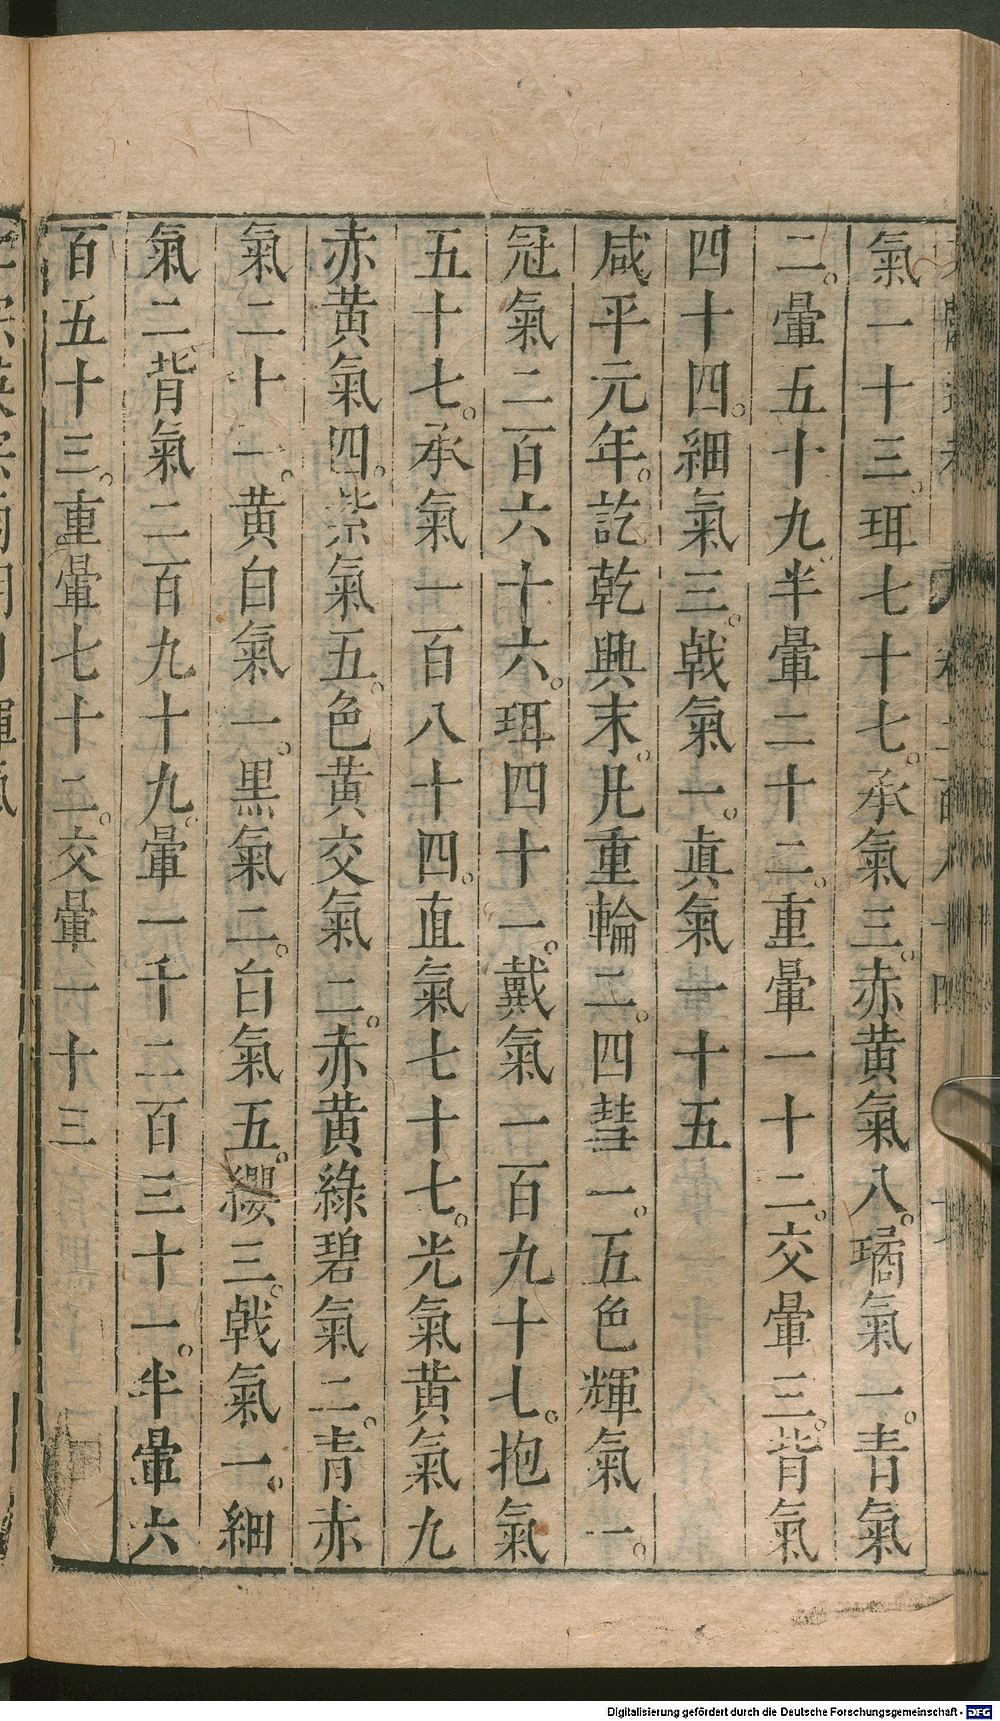 氣一十三。珥七十七。承氣三。赤黄氣八。璚氣一。青氣
二。暈五十九。半暈二十二。重暈一十二。交暈三。背氣
四十四。細氣三。戟氣一。真氣一十五
咸平元年。訖乾興末。凡重輪二。四彗一。五色輝氣一。
冠氣二百六十六。珥四十一。戴氣一百九十七。抱氣
五十七。承氣一百八十四。直氣七十七。光氣黄氣九
赤黄氣四。紫氣五。色黄交氣二。赤黄綠碧氣二。青赤
氣二十一。黄白氣一。黒氣二。白氣五。纓三。戟氣一。細
氣二。背氣二百九十九。暈一千二百三十一。半暈六
百五十三。重暈七十二。交暈一十三
Digitalisierung gefördert durch die Deutsche Forschungsgemeinschaft - DFG